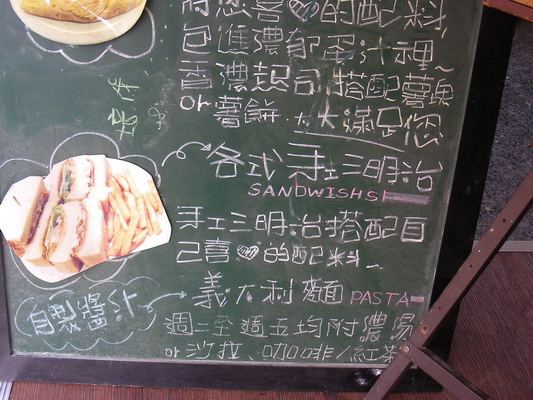 將您喜♡的配料,
包進濃郁蛋汁裡~
香濃起司搭配薯塊
or 薯餅..大大滿足您
各式手工三明治
SANDWISHS
手工三明治搭配自
己喜♡的配料~
義大利麵 PASTA
自製醬汁
週一至週五均附濃湯
or 沙拉、咖啡/紅茶